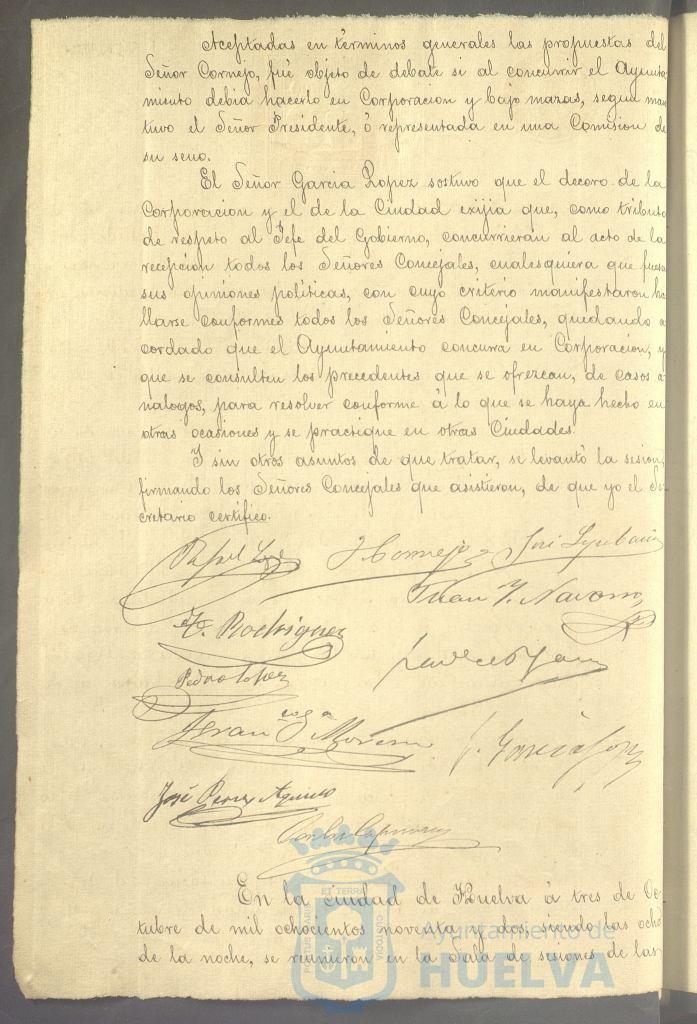 Aceptadas en términos generales las propuestas del
Señor Cornejo, fué objeto de debate si al concurrir el Ayunta
miento debia hacerlo en Corporacion y bajo mazas, segun man
tuvo el Señor Presidente, ó representada en una Comision de
su seno.
El Señor Garcia Lopez sostuvo que el decoro de la
Corporacion y el de la Ciudad exijia que, como tributo
de respeto al Jefe del Gobierno, concurrieran al acto de la
recepcion todos los Señores Concejales, cualesquiera que fuesen
sus opiniones politicas, con cuyo criterio manifestaron ha
llarse conformes todos los Señores Concejales, quedando a
cordado que el Ayuntamiento concurra en Corporacion, y
que se consulten los precedentes que se ofrezcan, de casos a
nalogos, para resolver conforme á lo que se haya hecho en
otras ocasiones y se practique en otras Ciudades.
Y sin otros asuntos de que tratar, se levantó la sesion,
firmando los Señores Concejales que asistieron, de que yo el Se
cretario certifico.
Rafael Lopez J. Cornejo José
Juan J. Navarro
Rodriguez
Pedro Lopez
Fran.co G.a Morena
J. Garcia Lopez
José Perez
En la ciudad de Huelva á tres de Oc
tubre de mil ochocientos noventa y dos, siendo las ocho
de la noche, se reunieron en la Sala de sesiones de las
Ayuntamiento de
HUELVA
PORTUS MARIS
ET TERRÆ
CUSTODIA